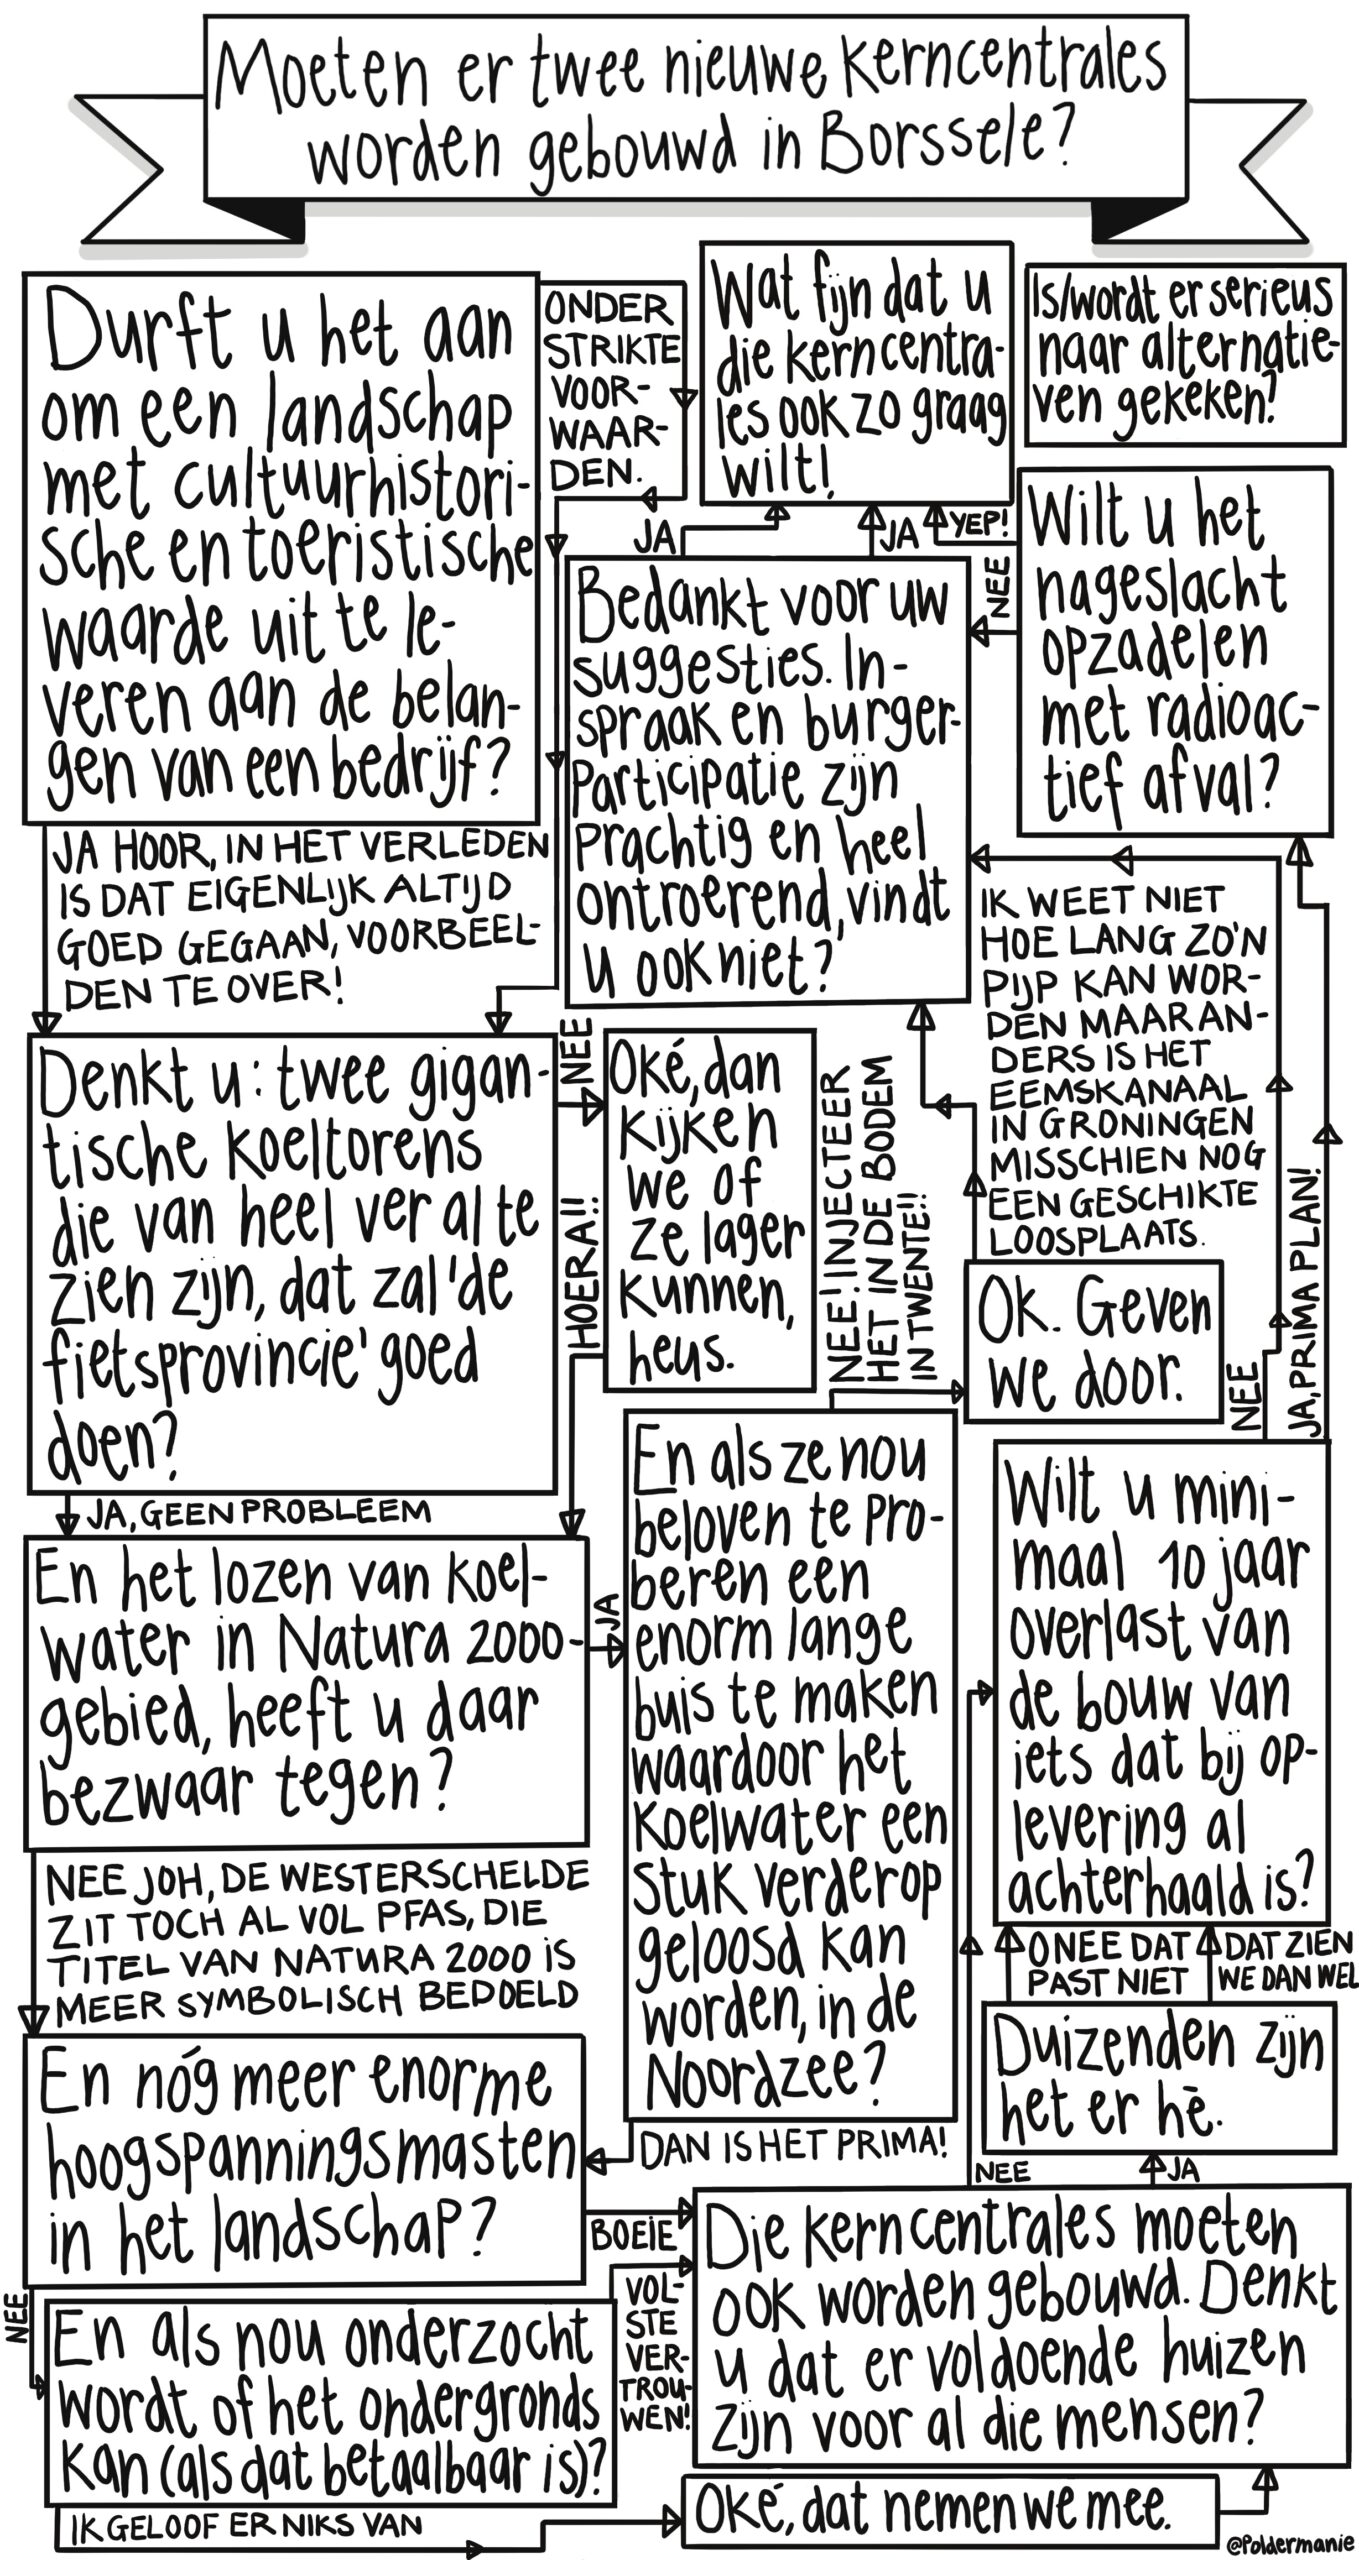 Moeten er twee nieuwe kerncentrales
worden gebouwd in Borssele?
Durft u het aan
om een landschap
met cultuurhistori-
sche en toeristische
waarde uit te le-
veren aan de belan-
gen van een bedrijf?
ONDER
STRIKTE
VOOR-
WAAR-
DEN.
Wat fijn dat u
die kerncentra-
les ook zo graag
wilt!
Is/wordt er serieus
naar alternatie-
ven gekeken?
JA
JA
YEP!
NEE
Wilt u het
nageslacht
opzadelen
met radioac-
tief afval?
Bedankt voor uw
suggesties. In-
spraak en burger-
participatie zijn
prachtig en heel
ontroerend, vindt
u ook niet?
JA HOOR, IN HET VERLEDEN
IS DAT EIGENLIJK ALTIJD
GOED GEGAAN, VOORBEEL-
DEN TE OVER!
IK WEET NIET
HOE LANG ZO'N
PIJP KAN WOR-
DEN MAAR AN-
DERS IS HET
EEMSKANAAL
IN GRONINGEN
MISSCHIEN NOG
EEN GESCHIKTE
LOOSPLAATS.
Denkt u: twee gigan-
tische koeltorens
die van heel ver al te
zien zijn, dat zal 'de
fietsprovincie' goed
doen?
NEE
Oké, dan
kijken
we of
ze lager
kunnen,
heus.
HOERA!!
NEE! INJECTEER
HET IN DE BODEM
IN TWENTE!!
Ok. Geven
we door.
NEE
JA, PRIMA PLAN!
JA, GEEN PROBLEEM
En het lozen van koel-
water in Natura 2000-
gebied, heeft u daar
bezwaar tegen?
JA
En als ze nou
beloven te pro-
beren een
enorm lange
buis te maken
waardoor het
koelwater een
stuk verderop
geloosd kan
worden, in de
Noordzee?
Wilt u mini-
maal 10 jaar
overlast van
de bouw van
iets dat bij op-
levering al
achterhaald is?
NEE JOH, DE WESTERSCHELDE
ZIT TOCH AL VOL PFAS, DIE
TITEL VAN NATURA 2000 IS
MEER SYMBOLISCH BEDOELD
O NEE DAT
PAST NIET
DAT ZIEN
WE DAN WEL
Duizenden zijn
het er hè.
En nóg meer enorme
hoogspanningsmasten
in het landschap?
DAN IS HET PRIMA!
NEE
JA
BOEIE
Die kerncentrales moeten
ook worden gebouwd. Denkt
u dat er voldoende huizen
zijn voor al die mensen?
NEE
En als nou onderzocht
wordt of het ondergronds
kan (als dat betaalbaar is)?
VOL-
STE
VER-
TROU-
WEN!
IK GELOOF ER NIKS VAN
Oké, dat nemen we mee.
@Poldermanie